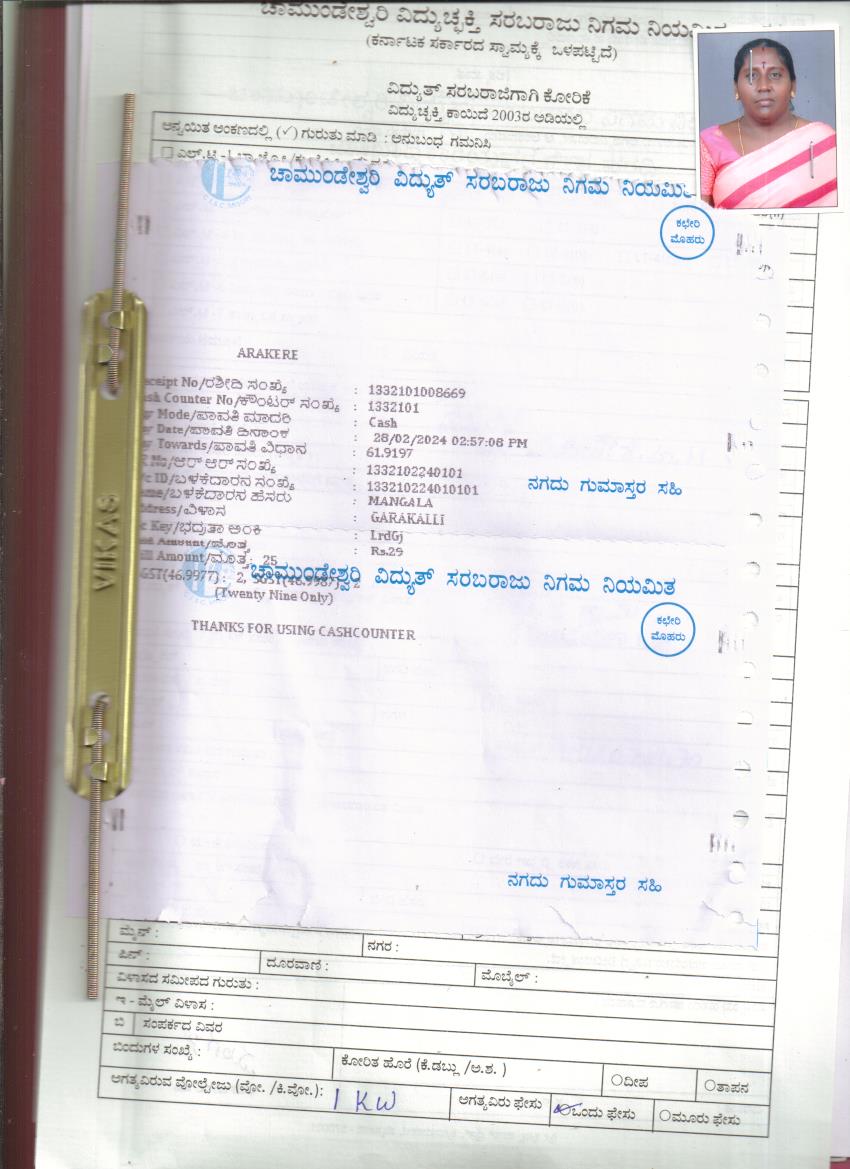 ಚಾಮುಂಡೇಶ್ವರಿ ವಿದ್ಯುಚ್ಛಕ್ತಿ ಸರಬರಾಜು ನಿಗಮ
(ಕರ್ನಾಟಕ ಸರ್ಕಾರದ ಸ್ವಾಮ್ಯಕ್ಕೆ ಒಳಪಟ್ಟಿದೆ)
ವಿದ್ಯುತ್ ಸರಬರಾಜಿಗಾಗಿ ಕೋರಿಕೆ
ವಿದ್ಯುಚ್ಛಕ್ತಿ ಕಾಯಿದೆ 2003ರ ಅಡಿಯಲ್ಲಿ
ಅನ್ವಯಿತ ಅಂಕಣದಲ್ಲಿ (✓) ಗುರುತು ಮಾಡಿ : ಅನುಬಂಧ ಗಮನಿಸಿ
ಚಾಮುಂಡೇಶ್ವರಿ ವಿದ್ಯುತ್ ಸರಬರಾಜು ನಿಗಮ
ಕಛೇರಿ
ಮೊಹರು
ARAKERE
No/ರಶೀದಿ ಸಂಖ್ಯೆ : 1332101008669
Counter No/ಕೌಂಟರ್ ಸಂಖ್ಯೆ : 1332101
Mode/ಪಾವತಿ ಮಾದರಿ : Cash
Date/ಪಾವತಿ ದಿನಾಂಕ : 28/02/2024 02:57:08 PM
Towards/ಪಾವತಿ ವಿಧಾನ : 61.9197
ಆರ್ ಸಂಖ್ಯೆ : 1332102240101
ID/ಬಳಕೆದಾರನ ಸಂಖ್ಯೆ : 133210224010101
ಬಳಕೆದಾರನ ಹೆಸರು : MANGALA
ವಿಳಾಸ : GARAKALLI
Key/ಭದ್ರತಾ ಅಂಕಿ : LrdGj
: Rs.29
Amount/ಮೊತ್ತ : 25
ನಗದು ಗುಮಾಸ್ತರ ಸಹಿ
ಚಾಮುಂಡೇಶ್ವರಿ ವಿದ್ಯುತ್ ಸರಬರಾಜು ನಿಗಮ ನಿಯಮಿತ
(Twenty Nine Only)
ಕಛೇರಿ
ಮೊಹರು
THANKS FOR USING CASHCOUNTER
VIKAS
ನಗದು ಗುಮಾಸ್ತರ ಸಹಿ
ಮೈನ್ :
ನಗರ :
ಪಿನ್ :
ದೂರವಾಣಿ :
ಮೊಬೈಲ್ :
ವಿಳಾಸದ ಸಮೀಪದ ಗುರುತು :
ಇ - ಮೈಲ್ ವಿಳಾಸ :
ಬಿ ಸಂಪರ್ಕದ ವಿವರ
ಬಿಂದುಗಳ ಸಂಖ್ಯೆ :
ಕೋರಿತ ಹೊರೆ (ಕೆ.ಡಬ್ಲು /ಅ.ಶ. )
ದೀಪ
ತಾಪನ
ಅಗತ್ಯವಿರುವ ವೋಲ್ಟೇಜು (ವೋ. /ಕಿ.ವೋ.): 1 KW
ಅಗತ್ಯವಿರು ಫೇಸು
ಒಂದು ಫೇಸು
ಮೂರು ಫೇಸು